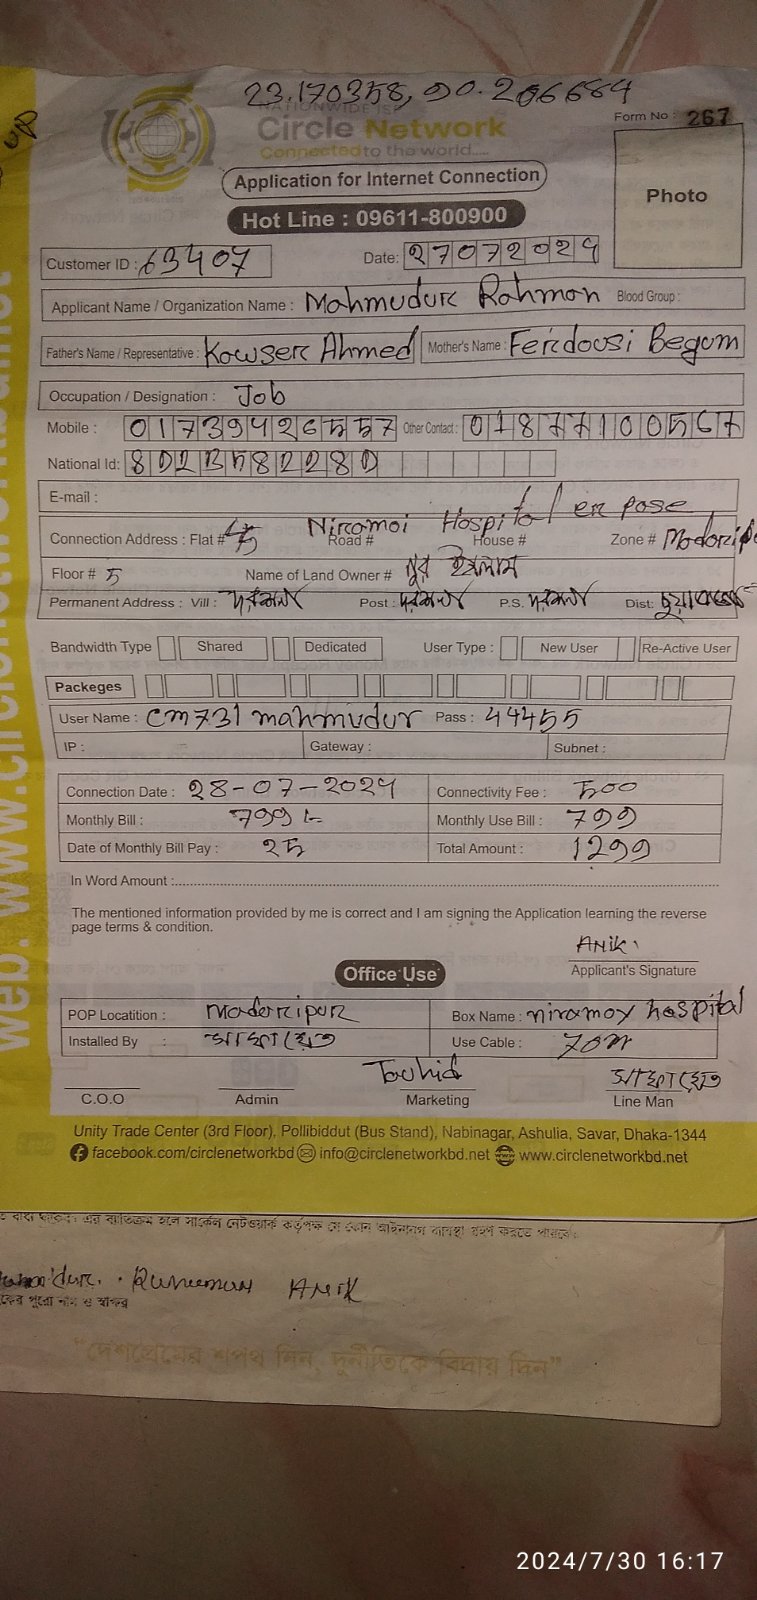 23.170358, 90.206684
UP
NATIONWIDE ISP
Circle Network
Connected to the world.....
Form No : 267
Photo
Application for Internet Connection
Hot Line : 09611-800900
Customer ID : 63407
Date: 27072024
Applicant Name / Organization Name : Mahmudur Rahman Blood Group :
Father's Name / Representative : Kowser Ahmed Mother's Name : Ferdousi Begum
Occupation / Designation : Job
Mobile : 01739426557 Other Contact : 01877100567
National Id: 8023582280
E-mail :
Niramoi Hospital er pose
Connection Address : Flat # Road # House # Zone #
Floor # 5 Name of Land Owner # নুর ইসলাম
Permanent Address : Vill : Post : P.S. Dist:
Bandwidth Type Shared Dedicated User Type : New User Re-Active User
Packeges
User Name : cm731 mahmudur Pass : 44455
IP : Gateway : Subnet :
Connection Date : 28-07-2024 Connectivity Fee : 500
Monthly Bill : 799/- Monthly Use Bill : 799
Date of Monthly Bill Pay : 25 Total Amount : 1299
In Word Amount :
The mentioned information provided by me is correct and I am signing the Application learning the reverse
page terms & condition.
ANIK.
Applicant's Signature
Office Use
POP Locatition : Maderipur Box Name : niramoy hospital
Installed By : Use Cable : 70m
Touhid
C.O.O Admin Marketing Line Man
Unity Trade Center (3rd Floor), Pollibiddut (Bus Stand), Nabinagar, Ashulia, Savar, Dhaka-1344
facebook.com/circlenetworkbd info@circlenetworkbd.net www.circlenetworkbd.net
এর ব্যতিক্রম হলে সার্কেল নেটওয়ার্ক কর্তৃপক্ষ যে কোন আইনানুগ ব্যবস্থা গ্রহণ করতে পারবে।
ANIK
পুরো নাম ও স্বাক্ষর
"দেশপ্রেমের শপথ নিন, দুর্নীতিকে বিদায় দিন"
2024/7/30 16:17